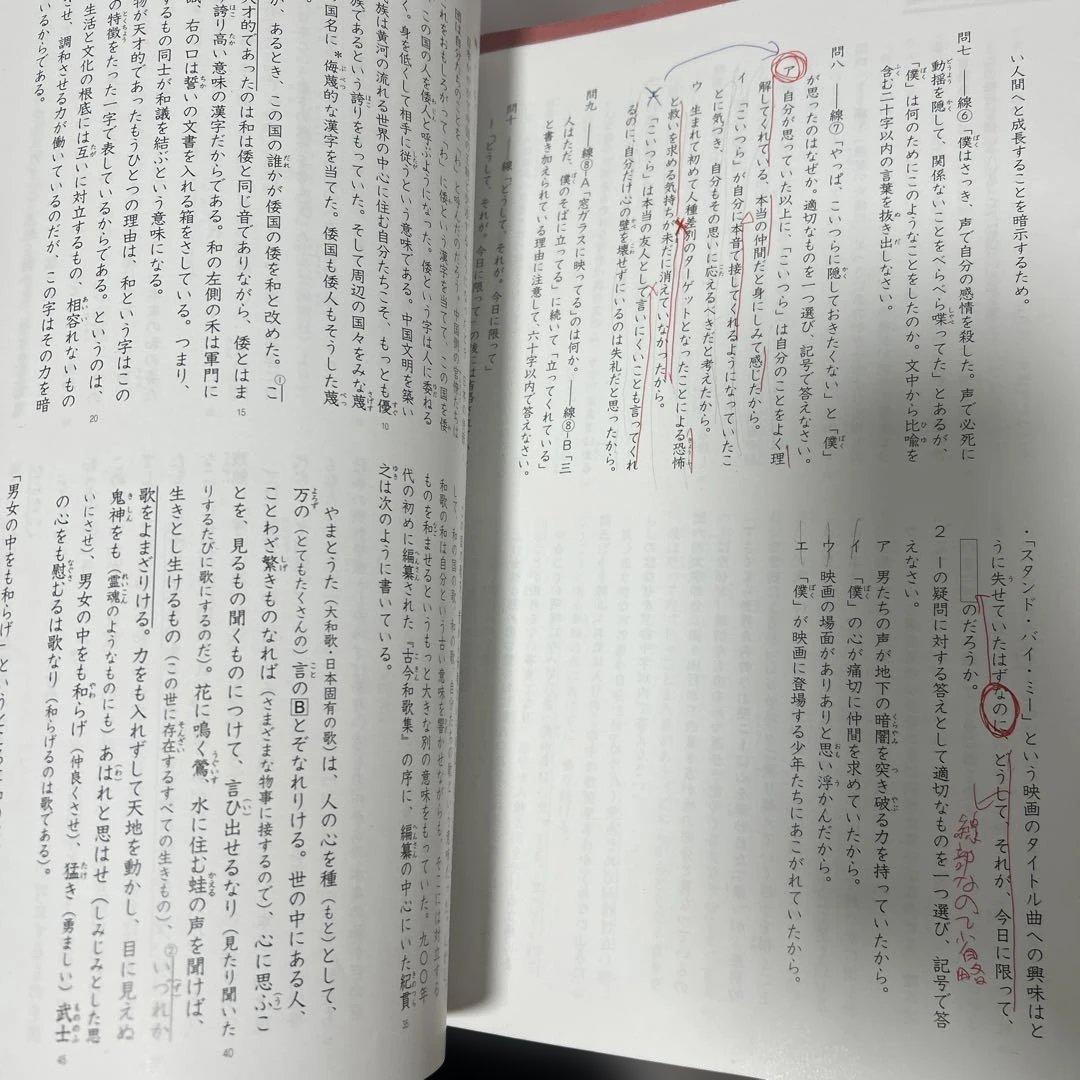 い人間へと成長することを暗示するため。
問七 ――線⑥「僕はさっき、声で自分の感情を殺した。声で必死に
動揺を隠して、関係ないことをべらべら喋ってた」とあるが、
「僕」は何のためにこのようなことをしたのか。文中から比喩を
含む二十字以内の言葉を抜き出しなさい。
問八 ――線⑦「やっぱ、こいつらに隠しておきたくない」と「僕」
が思ったのはなぜか。適切なものを一つ選び、記号で答えなさい。
ア 自分が思っていた以上に、「こいつら」は自分のことをよく理
解してくれている、本当の仲間だと身にしみて感じたから。
イ 「こいつら」が自分に本音で接してくれるようになっていたこ
とに気づき、自分もその思いに応えるべきだと考えたから。
ウ 生まれて初めて人種差別のターゲットとなったことによる恐怖
と救いを求める気持ちが未だに消えていなかったから。
「こいつら」は本当の友人として言いにくいことも言ってくれ
るのに、自分だけ心の壁を壊せずにいるのは失礼だと思ったから。
問九 ――線⑧-A「窓ガラスに映ってる」のは何か。――線⑧-B「三
人はただ、僕のそばに立ってる」に続いて「立ってくれている」
と書き加えられている理由に注意して、六十字以内で答えなさい。
問十 線「どうして、それが、今日に限って」
1 「どうして、それが。今日に限って」の後には
・「スタンド・バイ・ミー」という映画のタイトル曲への興味はと
うに失せていたはずなのに、どうして、それが、今日に限って、
のだろうか。
線部なので省略
2 1の疑問に対する答えとして適切なものを一つ選び、記号で答
えなさい。
ア 男たちの声が地下の暗闇を突き破る力を持っていたから。
イ 「僕」の心が痛切に仲間を求めていたから。
ウ 映画の場面がありありと思い浮かんだから。
エ 「僕」が映画に登場する少年たちにあこがれていたから。
この国の人を倭人と呼ぶようになった。倭という字は人に委ねる
く。身を低くして相手に従うという意味である。中国文明を築い
族は黄河の流れる世界の中心に住む自分たちこそ、もっとも優
族であるという誇りをもっていた。そして周辺の国々をみな蔑
国名に、*侮蔑的な漢字を当てた。倭国も倭人もそうした蔑
10
が、あるとき、この国の誰かが倭国の倭を和と改めた。①こ
天才的であったのは和は倭と同じ音でありながら、倭とはま
誇り高い意味の漢字だからである。和の左側の禾は軍門に
15
、右の口は誓いの文書を入れる箱をさしている。つまり、
するもの同士が和議を結ぶという意味になる。
物が天才的であったもうひとつの理由は、和という字はこの
の特徴をたった一字で表しているからである。というのは、
生活と文化の根底には互いに対立するもの、相容れないもの
20
させ、調和させる力が働いているのだが、この字はその力を暗
ているからである。
ものを和ませるというもっと大きな別の意味をもっていた。九〇〇年
代の初めに編纂された『古今和歌集』の序に、編纂の中心にいた紀貫
35
之は次のように書いている。
やまとうた（大和歌・日本固有の歌）は、人の心を種（もと）として、
万の（とてもたくさんの）言のBとぞなれりける。世の中にある人、
ことわざ繁きものなれば（さまざまな物事に接するので）、心に思ふこ
とを、見るもの聞くものにつけて、言ひ出せるなり（見たり聞いた
40
りするたびに歌にするのだ）。花に鳴く鶯、水に住む蛙の声を聞けば、
生きとし生けるもの（この世に存在するすべての生きもの）、②いづれか
歌をよまざりける。力をも入れずして天地を動かし、目に見えぬ
鬼神をも（霊魂のようなものにも）あはれと思はせ（しみじみとした思
いにさせ）、男女の中をも和らげ（仲良くさせ）、猛き（勇ましい）武士
45
の心をも慰むるは歌なり（和らげるのは歌である）。